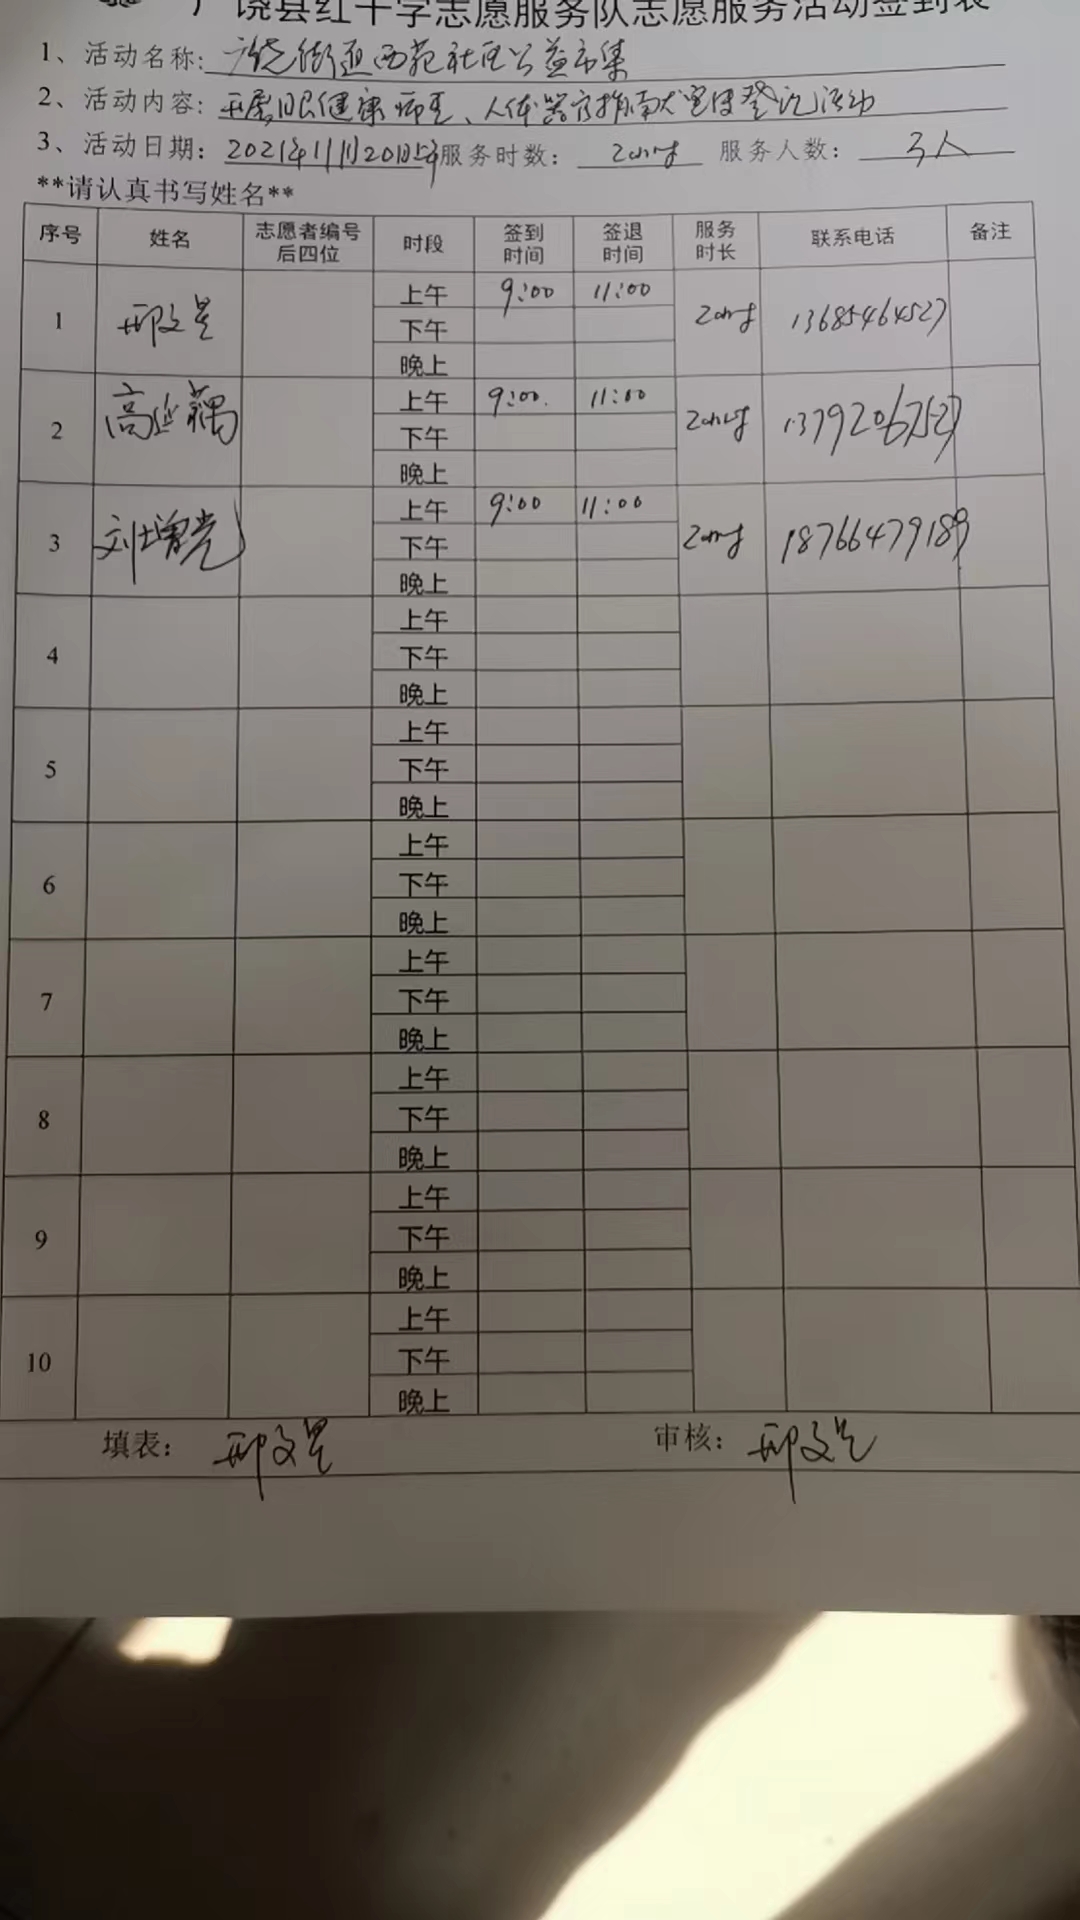 广饶县红十字志愿服务队志愿服务活动签到表
1、活动名称：广饶街道西苑社区公益市集
2、活动内容：开展眼健康筛查、人体器官捐献宣传登记活动
3、活动日期：2021年11月20日上午 服务时数：2小时 服务人数：3人
**请认真书写姓名**
序号 姓名 志愿者编号后四位 时段 签到时间 签退时间 服务时长 联系电话 备注
1 邢文星 上午 9:00 11:00 2小时 13685464527
下午
晚上
2 高 上午 9:00. 11:00 2小时 13792067527
下午
晚上
3 刘增光 上午 9:00 11:00 2小时 18766479189
下午
晚上
4 上午
下午
晚上
5 上午
下午
晚上
6 上午
下午
晚上
7 上午
下午
晚上
8 上午
下午
晚上
9 上午
下午
晚上
10 上午
下午
晚上
填表： 邢文星 审核： 邢文星